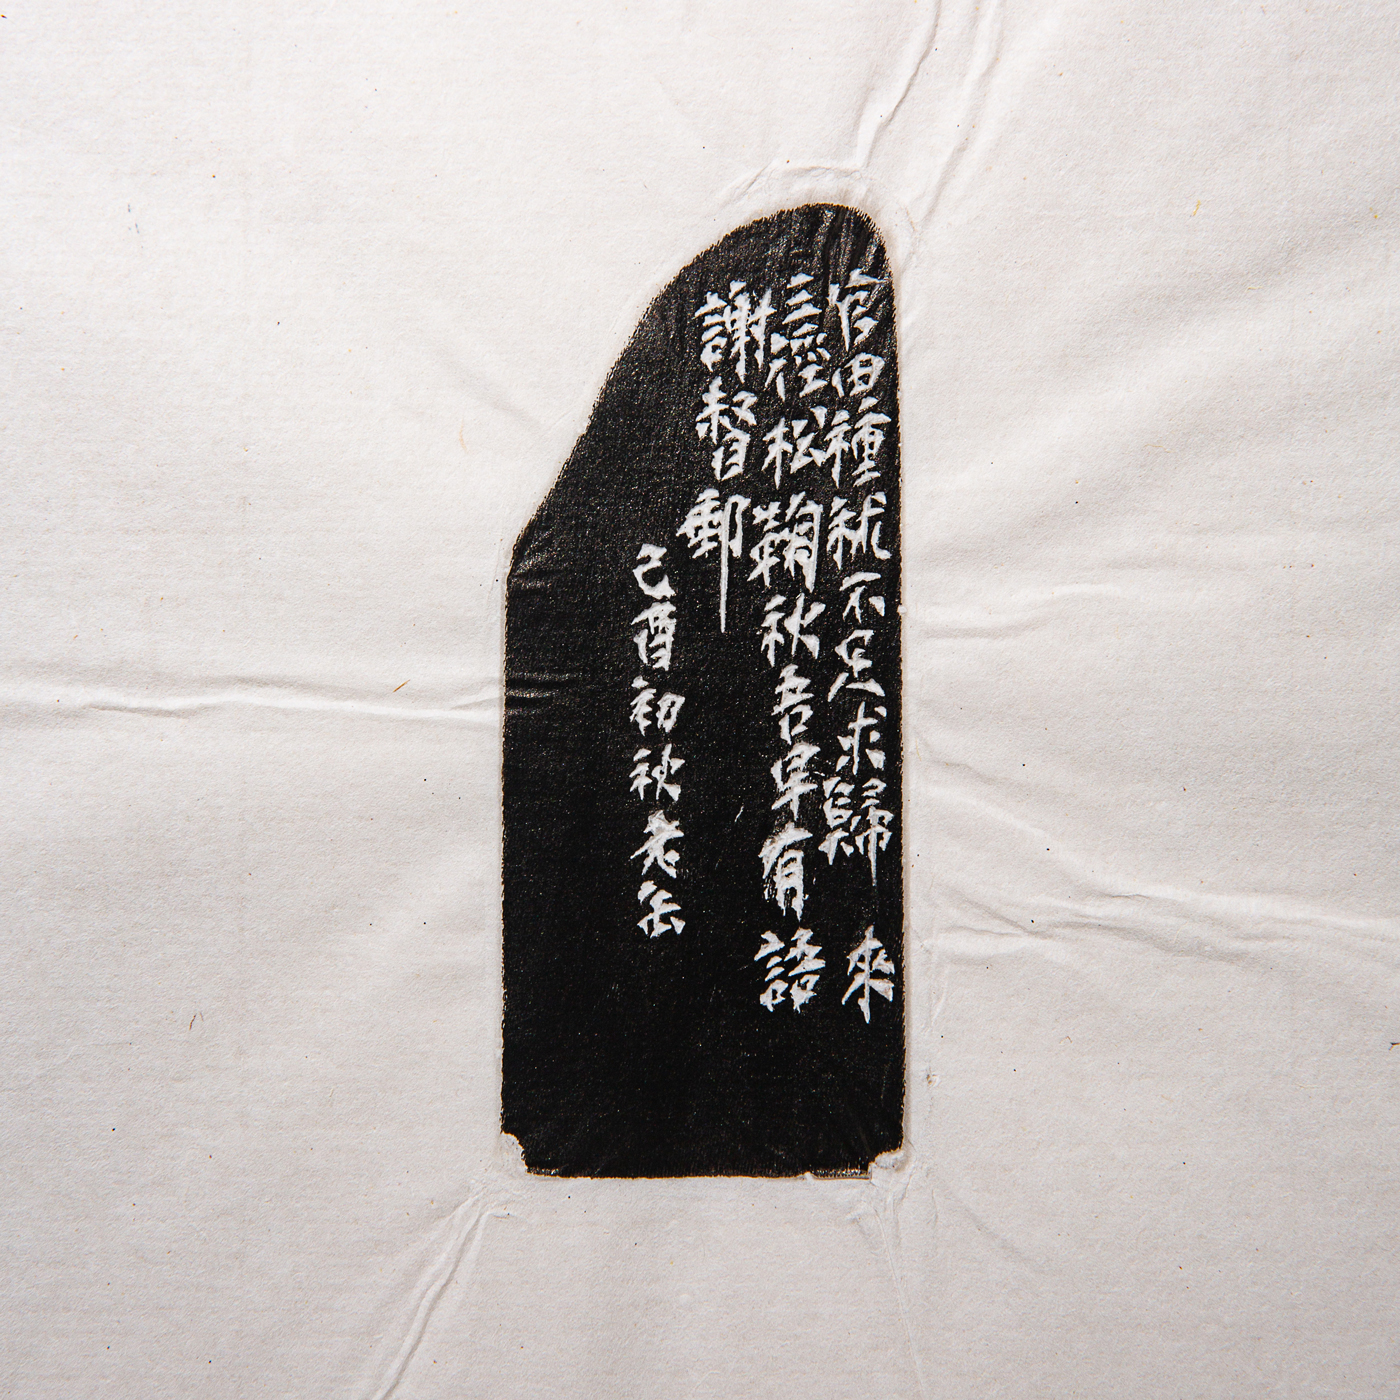 官田種秫不足求歸來
三徑松菊秋吾早有語
謝督郵
己酉初秋老缶